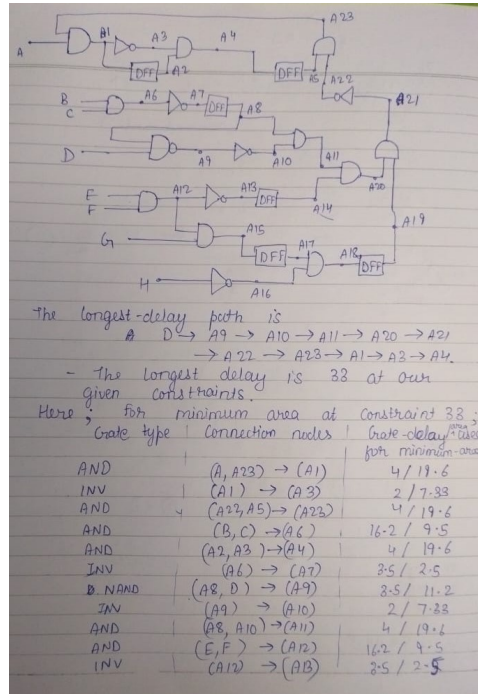 A23
A
A1
A3
A4
DFF
A2
DFF
A5
A22
B
C
A6
A7
DFF
A8
A21
D
A9
A10
A11
A20
E
F
A12
A13
DFF
A14
A19
G
A15
DFF
A17
A18
DFF
H
A16
The longest-delay path is
A D → A9 → A10 → A11 → A20 → A21
→ A22 → A23 → A1 → A3 → A4.
- The longest delay is 33 at our
given constraints.
Here ; for minimum area at constraint 33 ;
Gate type | Connection nodes | Gate-delay / area used
for minimum-area
AND (A, A23) → (A1) 4 / 19.6
INV (A1) → (A3) 2 / 7.33
AND (A22, A5) → (A23) 4 / 19.6
AND (B, C) → (A6) 16.2 / 9.5
AND (A2, A3) → (A4) 4 / 19.6
INV (A6) → (A7) 3.5 / 2.5
NAND (A8, D) → (A9) 3.5 / 11.2
INV (A9) → (A10) 2 / 7.33
AND (A8, A10) → (A11) 4 / 19.6
AND (E, F) → (A12) 16.2 / 9.5
INV (A12) → (A13) 3.5 / 2.5